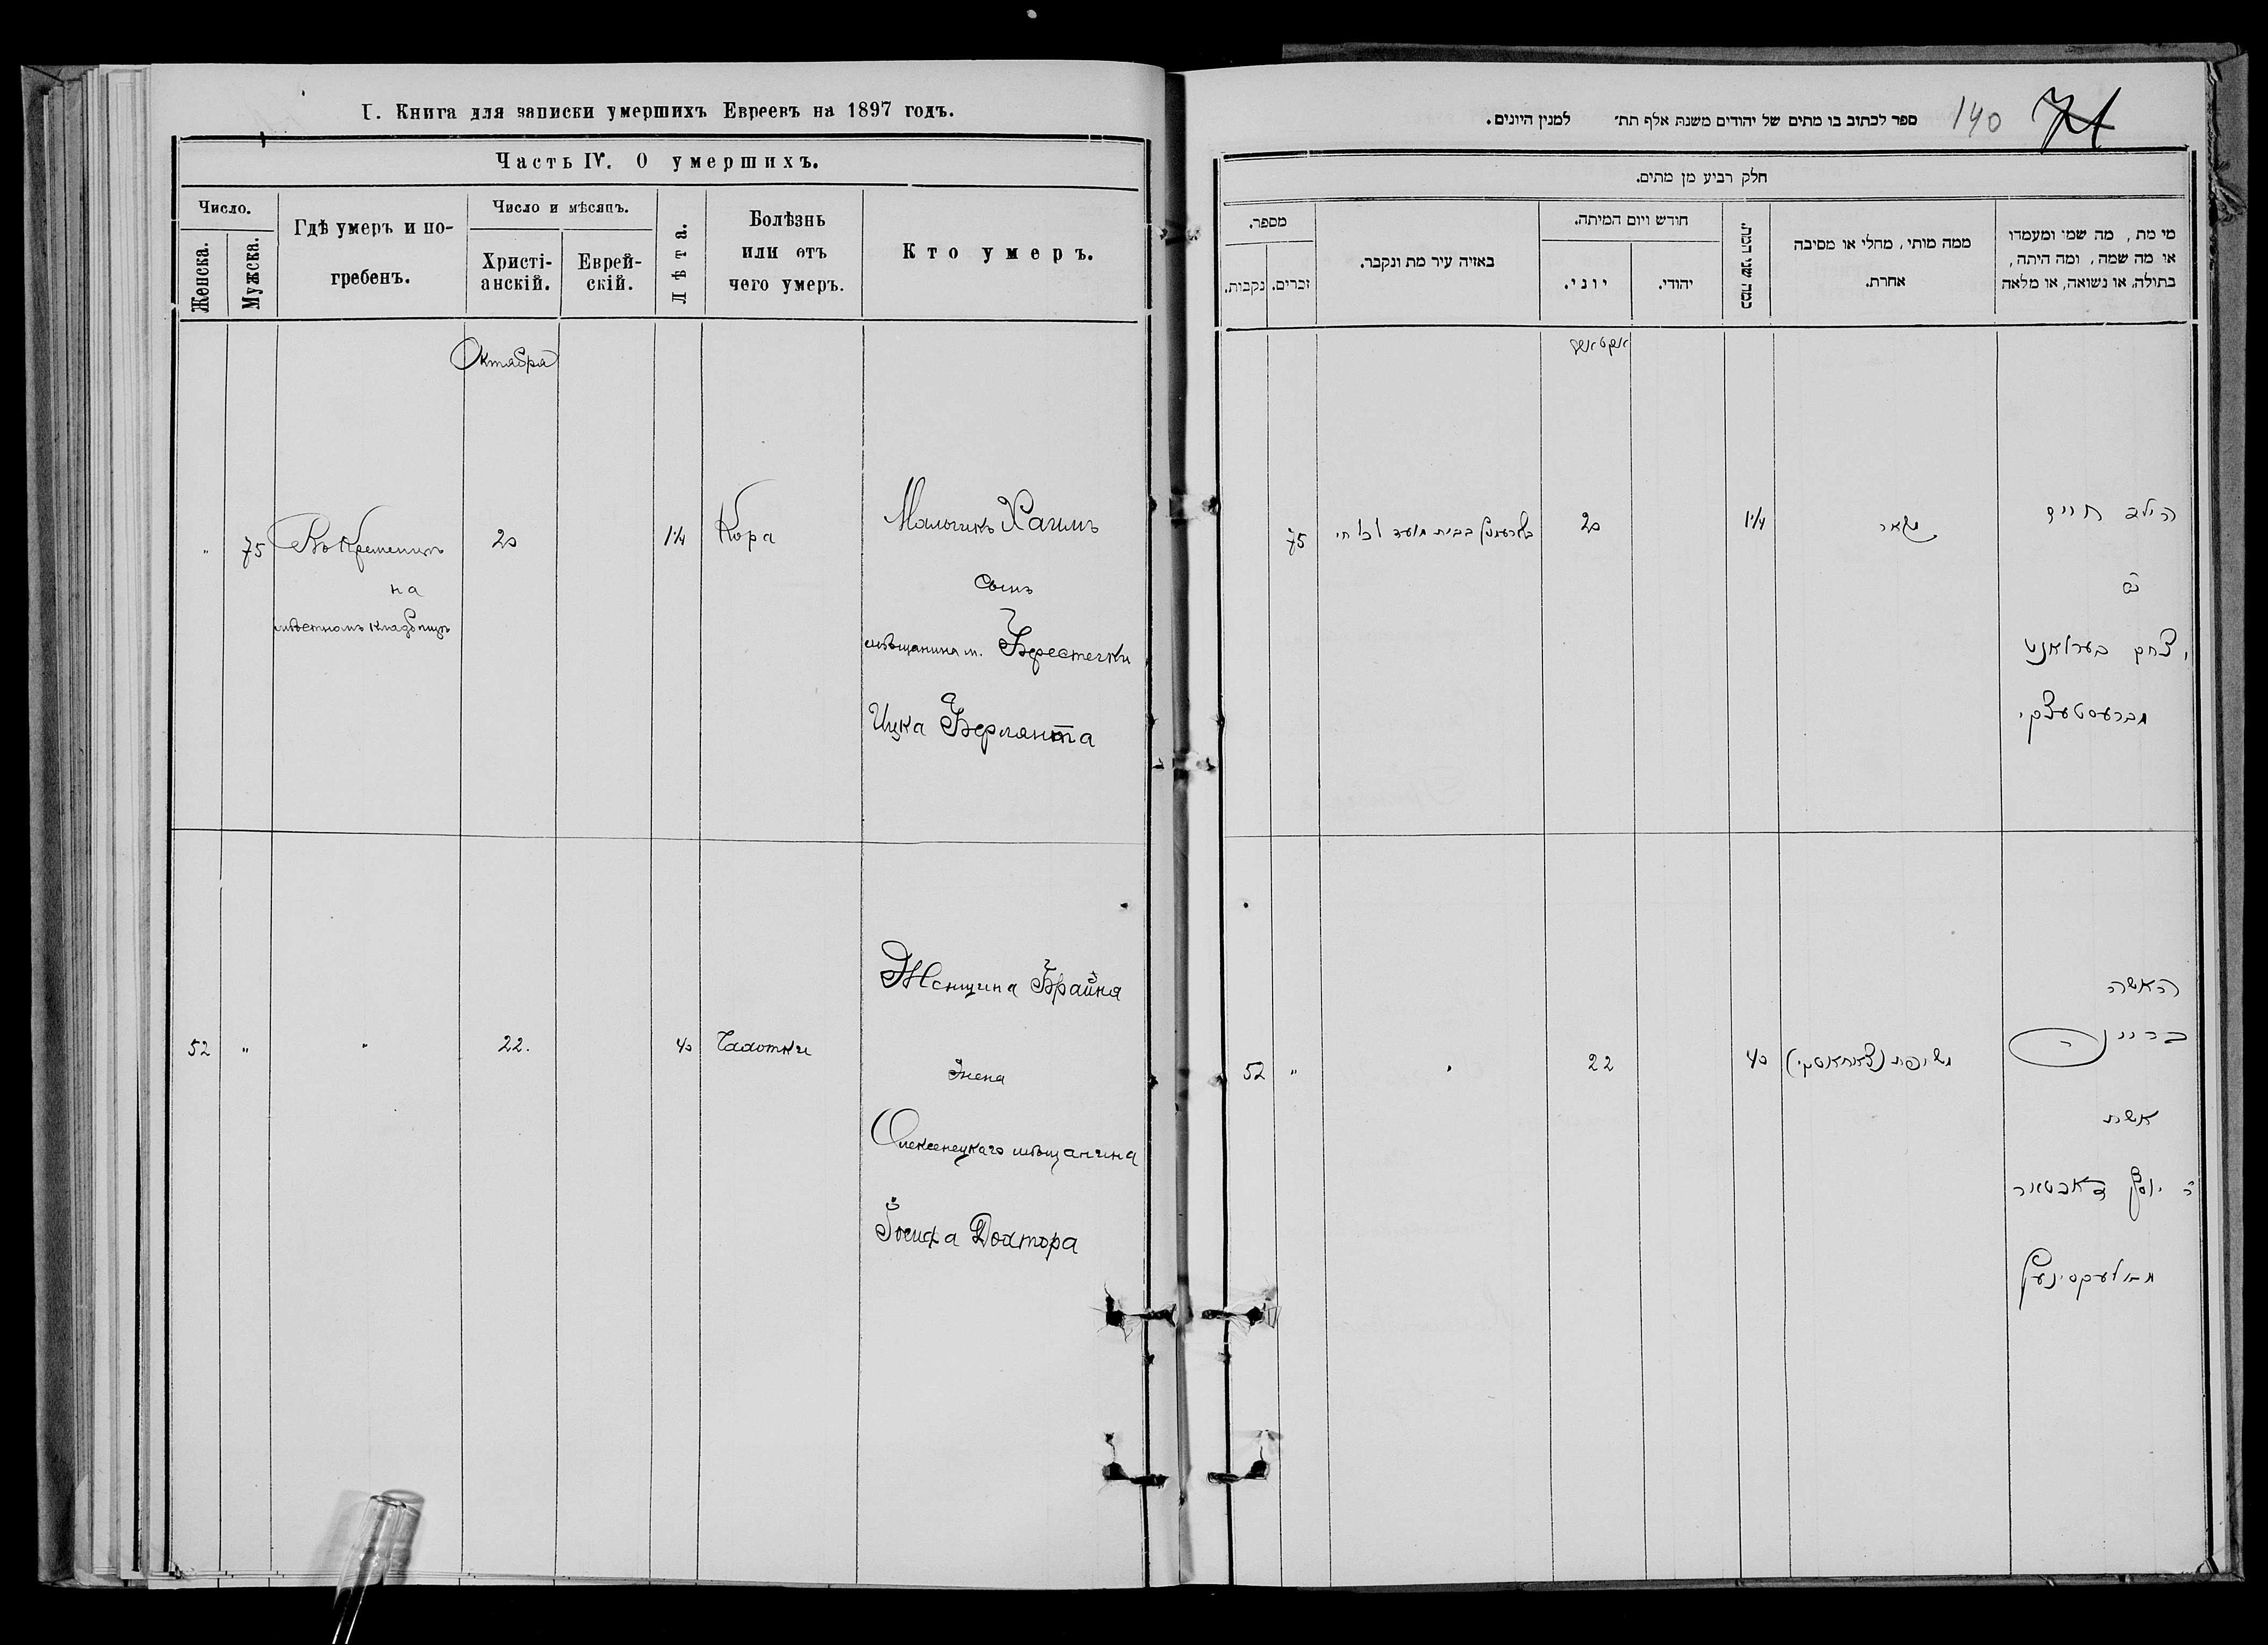 I. Книга для записки умершихъ Евреевъ на 1897 годъ.
Часть IV. О умершихъ.
Число.
Женска.
Мужска.
Гдѣ умеръ и по-
гребенъ.
Число и мѣсяцъ.
Христі-
анскій.
Еврей-
скій.
Лѣта.
Болѣзнь
или отъ
чего умеръ.
Кто умеръ.
Октября
"
75
Въ Кременцѣ
на
мѣстномъ кладбищѣ
20
1 1/4
Кора
Мальчикъ Хаимъ
сынъ
мѣщанина м. Берестечки
Ицка Берланта
52
"
"
22.
40
Чахотки
Женщина Брайна
жена
Олексенецкаго мѣщанина
Іосифа Дохтора
ספר לכתוב בו מתים של יהודים משנת אלף תת׳ למנין היונים.
140
71
חלק רביע מן מתים.
מספר.
נקבות.
זכרים.
באזיה עיר מת ונקבר.
חודש ויום המיתה.
יוני.
יהודי.
כמה שני המת.
ממה מותי, מחלי או מסיבה
אחרת.
מי מת, מה שמו ומעמדו
או מה שמה, ומה היתה,
בתולה, או נשואה, או מלאה
75
בבית מועד לכל חי
20
1 1/4
הילד חיים
יצחק בערלאנט
מברעסטעצקי
52
"
"
22
40
האשה
בריינה
אשת
ר׳ יוסף דאכטאר